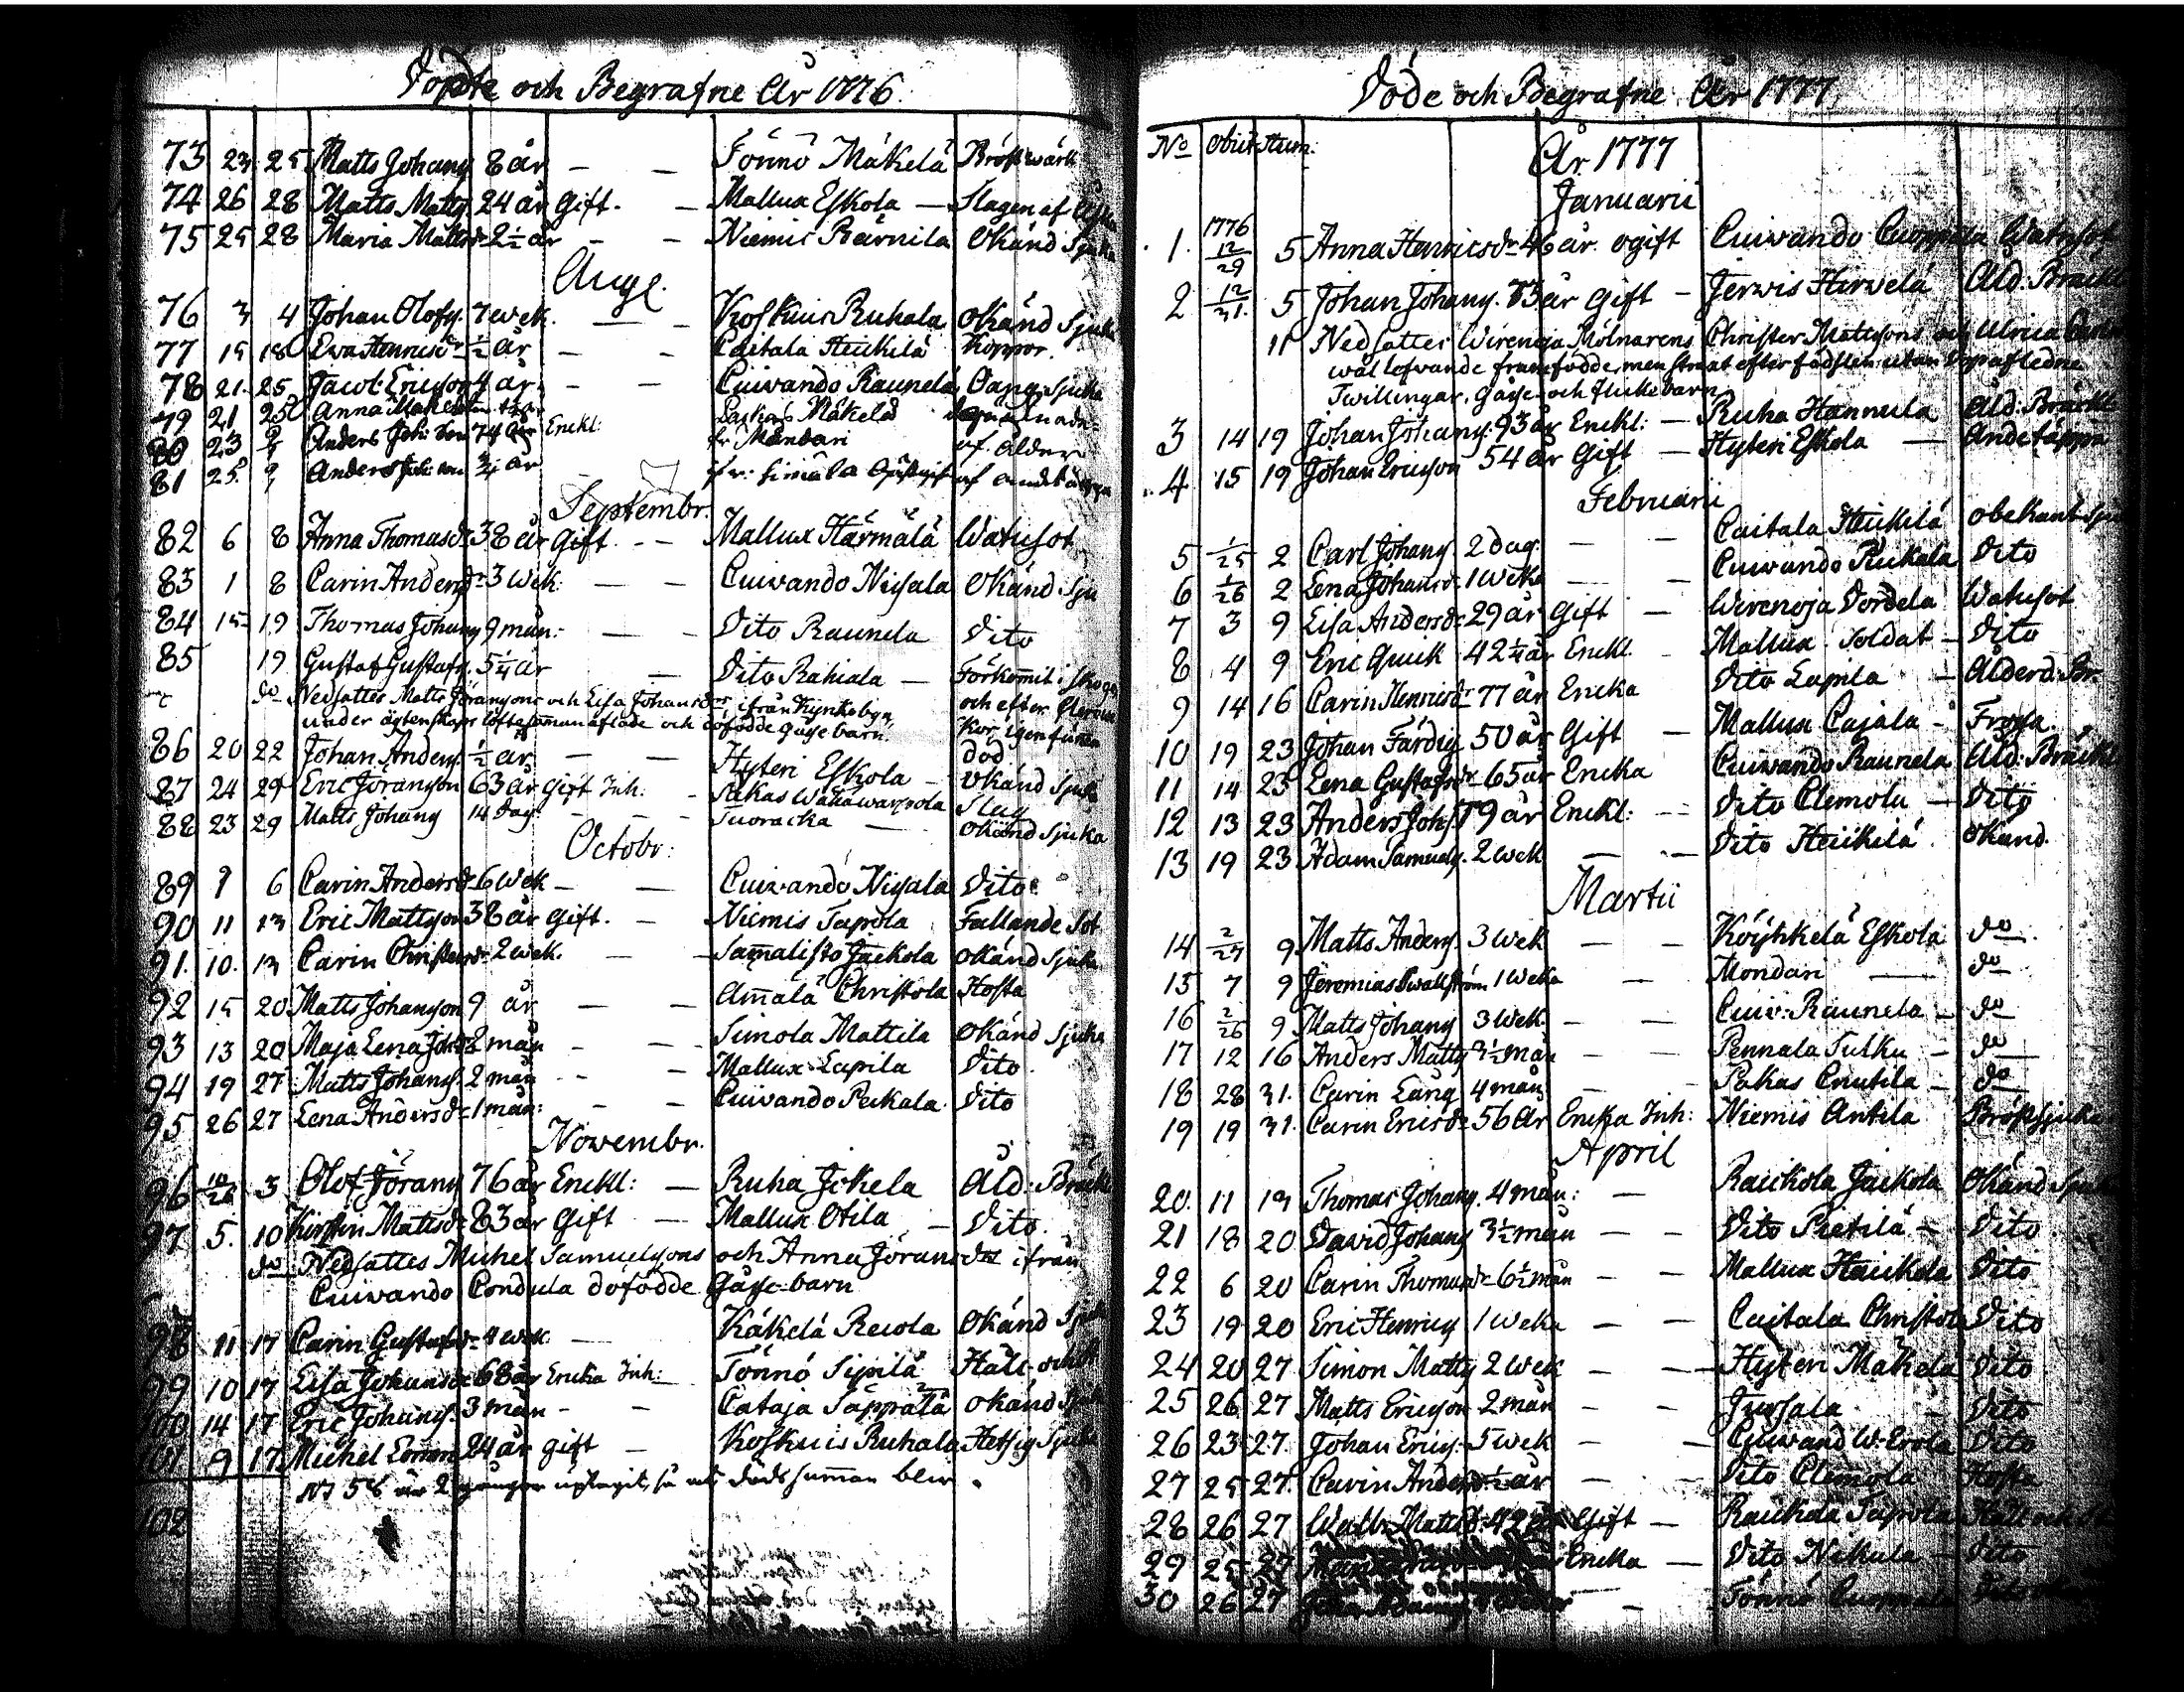 Döde och Begrafne År 1776.
73 23 25 Matts Johans: 8 år — — Tönnö Mäkelä Bröstwärk
74 26 28 Matts Matts: 24 år Gift. — Mallux Eskola — Slagen af Åskan
75 25 28 Maria Mattsdr 2½ år — — Niemis Kärnila Okänd Sjuka
Aug.
76 3 4 Johan Olofs: 7 wek. — — Koskuis Ruhala Okänd Sjuka
77 15 18 Ewa Henricsdr ½ år — — Caitala Heikilä Koppor.
78 21. 25 Jacob Ericsson 4 år. — — Cuiwando Raunela Oang. Sjuka
79 21 25 Anna Mäkelä Laskas Mäkelä
80 23 Anders Joh: son 74 år Enckl: fr Mändari af Ålder
81 25. Anders Joh: son ¾ år fr: Simula af andtäppa
Septembr.
82 6 8 Anna Thomasdr 38 år Gift — — Mallux Härmälä Watusot
83 1 8 Carin Andersdr 3 Wek: — — Cuiwando Nisala Okänd Sju
84 15 19 Thomas Johans 9 mån: — — Dito Raunela Dito
85 19 Gustaf Gustafs. 5¼ år — Dito Rahiala — Förkommit i skogen
do Nedsattes Matts Göranssons och Lisa Johansdrs, ifrån Kynkäbyn, och efter flera
under ägtenskaps löfte samanaflade och döfödde Gåsse barn. igenfunnen
86 20 22 Johan Anders ½ år — — Hyteri Eskola — död
87 24 29 Eric Göransson 63 år Gift Inh: - Sakas Wähäwarpola Okänd Sjuka
88 23 29 Matts Johans 14 Dag. - - - Suoracka — Slag Okänd Sjuka
Octobr:
89 1 6 Carin Andersdr 6 Wek — — Cuiwando Nisala Dito
90 11 13 Eric Mattsson 38 år Gift. — Niemis Tapola Fallande Sot
91. 10. 13 Carin Christersdr 2 wek. — — Sam̄alisto Jackola okänd Sjuka
92 15 20 Matts Johansson 9 år — — Am̄älä Christola Hosta
93 13 20 Maja Lena Johsdr 2 mån — — Simola Mattila Okänd Sjuka
94 19 27 Matts Johans. 2 mån - - — Mallux Lapila Dito.
95 26 27 Lena Andersdr 1 mån: - — Cuiwando Peckala Dito
Nowembr.
96 10/26 3 Olof Görans 76 år Enckl: — Ruha Jokela Åld: Bräckl
97 5. 10 Kirstin Mattsdr 83 år Gift — Mallux Otila — Dito.
do Nedsattes Michel Samuelssons och Anna Göransdrs ifrån
Cuiwando Condula döfödde Gåsse-barn
98 11 17 Carin Gustafsdr 4 wek. — Käkelä Reiola Okänd Sjuka
99 10 17 Lisa Johansdr 68 år Encka Inh: Tönnö Sipilä Håll och
100 14 17 Eric Johans. 3 mån - - Cataja Säppälä okänd Sjuka
101 9 17 Michel 24 år gift — Koskuis Ruhala Hetsig Sjuka
No 58 är 2 gånger uptagit, så att döds sum̄an blir.
102
Döde och Begrafne År 1777
No Obiit Hum:
År 1777
Januarii
1. 1776 12/29 5 Anna Henricsdr 46 år. ogift Cuiwando Cuoppala Watusot
2 12/31. 5 Johan Johans. 73 år Gift — Jerwis Hirwelä Åld: Bräckl
11 Nedsattes Wirenoja Mölnarens Christer Mattssons och Ulrica
wäl lefwande framfödde, men strax efter födslen utan Dop afledne
Twillingar, Gåsse och flicke barn.
3 14 19 Johan Johans: 93 år Enckl: — Ruha Hannula Åld: Bräckl
4. 15 19 Johan Ericsson 54 år Gift — Hyteri Eskola — Andetäppa
Februarii
5 1/25 2 Carl Johans 2 Dag. — — Caitala Heikilä obekant Sju
6 1/26 2 Lena Johansdr 1 Weka — — Cuiwando Peckala Dito
7 3 9 Lisa Andersdr 29 år Gift — Wirenoja Dordela Watusot
8 4 9 Eric Quick 42¼ år Enckl. — Mallux Soldat — Dito
9 14 16 Carin Henricsdr 77 år Encka Dito Lapila — Ålderd: Br.
10 19 23 Johan Färdig 50 år Gift — Mallux Cajala — Frossa.
11 14 23 Lena Gustafsdr 65 år Encka Cuiwando Raunela Åld: Bräckl
12 13 23 Anders Johs. 79 år Enckl: — Dito Clemola — Dito
13 19 23 Adam Samuels. 2 wek — — Dito Heikilä Okänd.
Martii
14 2/27 9 Matts Anders 3 Wek — — Köyhkelä Eskola do.
15 7 9 Jeremias Swallström 1 Weka — Mondari — do
16 2/26 9 Matts Johans 3 Wek. — — Cuiw: Raunela — do
17 12 16 Anders Matts 3½ mån — — Pennala Tulku — do
18 28 31. Carin Lång 4 mån — - Sakas Cnutila — do
19 19 31. Carin Ericsdr 56 år Encka Inh: Niemis Antila Bröstsjuka
April
20. 11 13 Thomas Johans. 4 mån: — Raickola Jackola Okänd Sjuka
21 18 20 David Johans 3½ mån — — Dito Pietilä — Dito
22 6 20 Carin Thomasdr 6½ mån — — Mallux Haickola Dito
23 19 20 Eric Henrics 1 Weka — — Caitala Christola Dito
24 20 27 Simon Matts 2 Wek — — Hyteri Mäkelä Dito
25 26 27 Matts Ericsson 2 mån — — Jussala - Dito
26 23 27 Johan Erics. 5 Wek — — Cuiwand W. Erola Dito
27 25 27 Carin Andersdr ½ år — - Dito Clemola Hosta
28 26 27 Walb. Mattsdr 42 år Gift — Raickola Tapola Håll och
29 25 27 Encka — Dito Nikula — Dito
30 26 27 — Tönnö